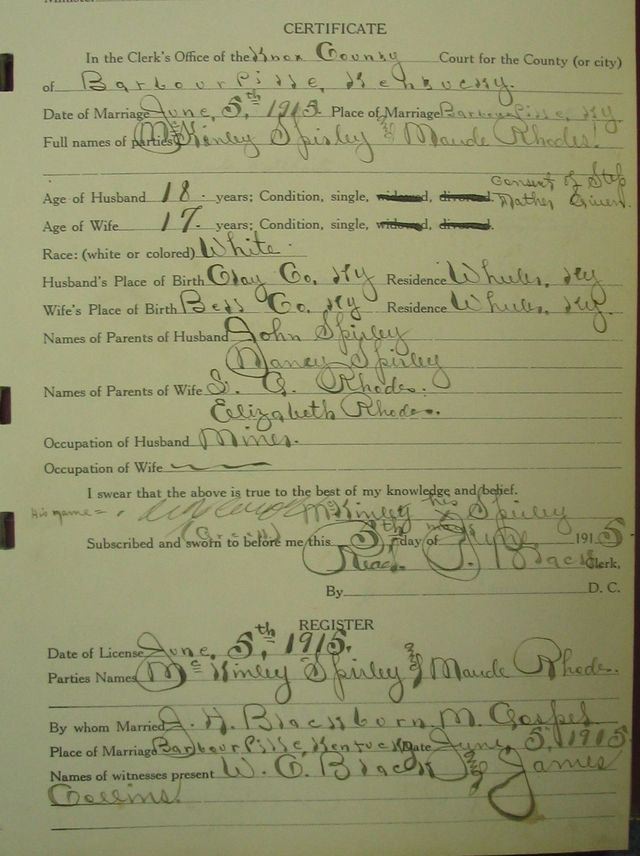 CERTIFICATE
In the Clerk's Office of the Knox County Court for the County (or city)
of Barbourville, Kentucky.
Date of Marriage June, 5,th 1915. Place of Marriage Barbourville, Ky
Full names of parties McKinley Spirley & Maude Rhodes.
Consent of Step
Age of Husband 18. years; Condition, single, widowed, divorced. Father Given.
Age of Wife 17. years; Condition, single, widowed, divorced.
Race: (white or colored) White.
Husband's Place of Birth Clay Co, Ky Residence Ky
Wife's Place of Birth Bell Co, Ky Residence Ky.
Names of Parents of Husband John Spirley
Nancy Spirley
Names of Parents of Wife Rhodes.
Elizabeth Rhodes.
Occupation of Husband Miner.
Occupation of Wife
I swear that the above is true to the best of my knowledge and belief.
His name = McKinley his x Spirley
Subscribed and sworn to before me this 5th day of June 1915
Read Black Clerk,
By D. C.
REGISTER
Date of License June, 5,th 1915.
Parties Names McKinley Spirley & Maude Rhodes.
By whom Married J. H. Blackburn, M. Gospel
Place of Marriage Barbourville, Kentucky Date June, 5, 1915
Names of witnesses present W. C. Black & James
Collins.